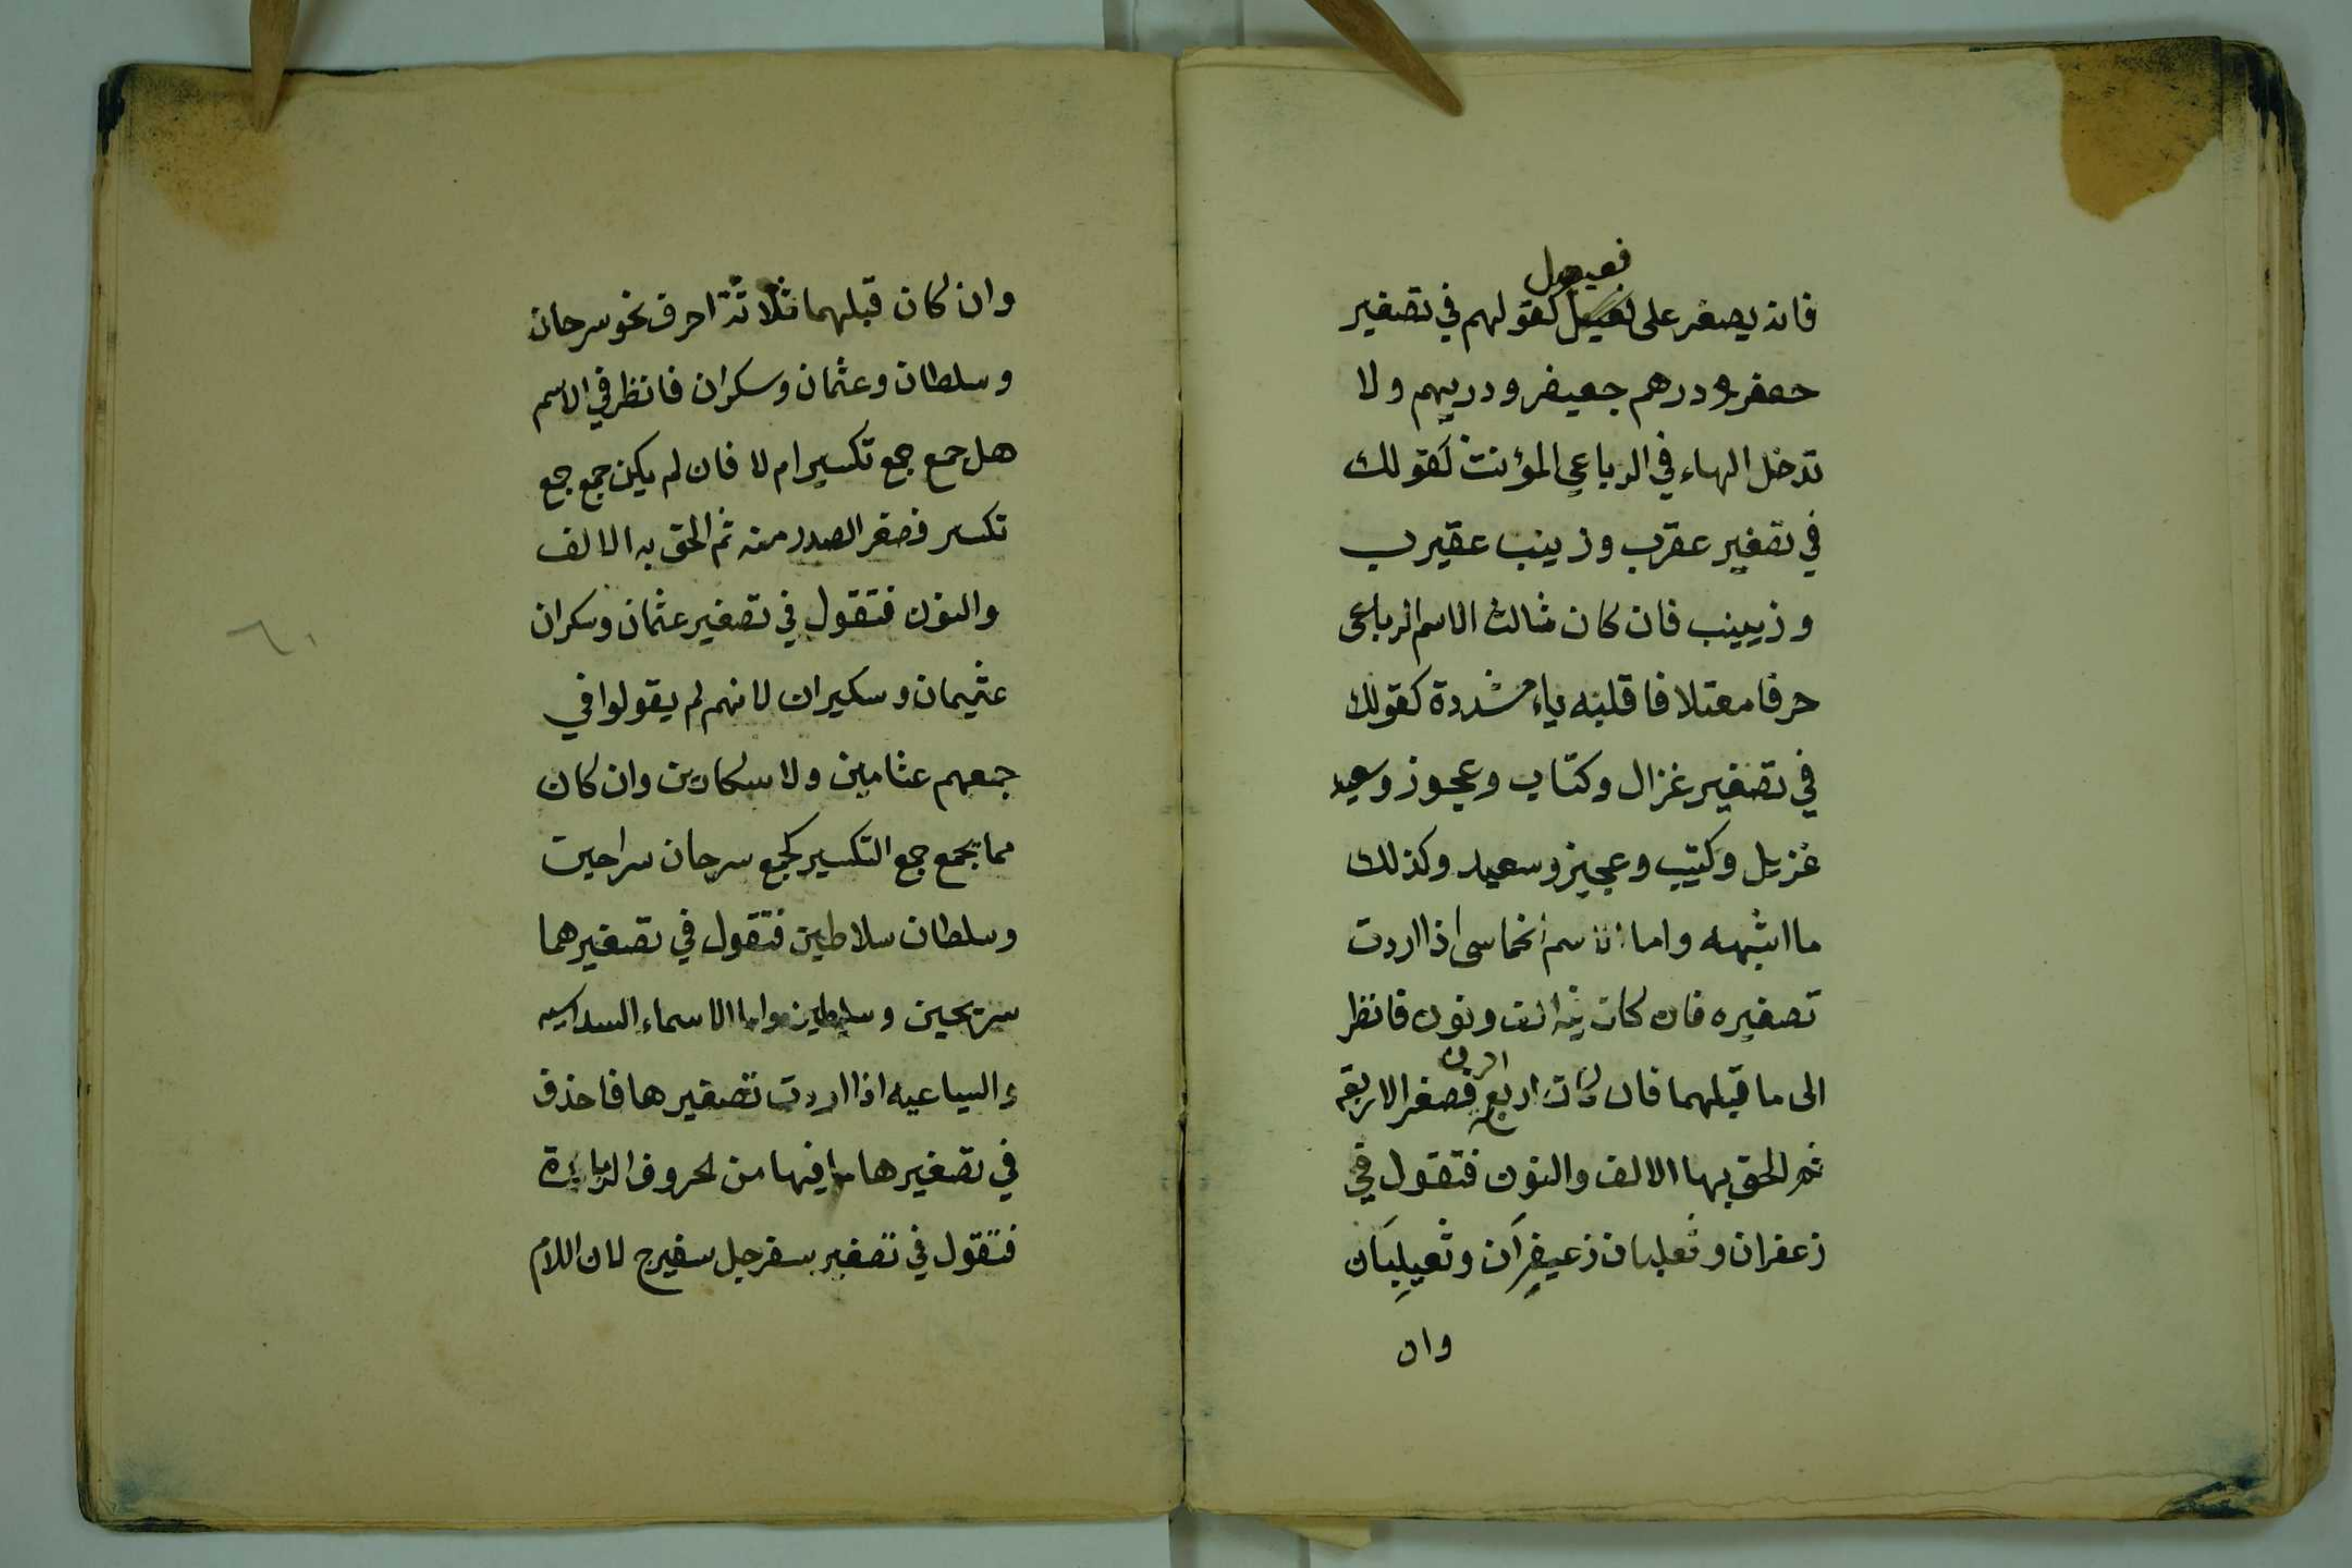 فعيعل
فانه يصغر على فعيعل كقولهم في تصغير
جعفر ودرهم جعيفر ودريهم ولا
تدخل الهاء في الرباعي المؤنث كقولك
في تصغير عقرب وزينب عقيرب
وزيينب فان كان ثالث الاسم الرباعي
حرفا معتلا فاقلبه ياء مشددة كقولك
في تصغير غزال وكتاب وعجوز وسعيد
غزيل وكتيب وعجيز وسعيد وكذلك
ما اشبهه واما الاسم الخماسي اذا اردت
تصغيره فان كان فيه الف ونون فانظر
الى ما قبلهما فان كان اربع احرف فصغر الاربعة
ثم الحق بها الالف والنون فتقول في
زعفران وثعلبان زعيفران وثعيلبان
وان
وان كان قبلهما ثلاثة احرف نحو سرحان
وسلطان وعثمان وسكران فانظر في الاسم
هل جمع جمع تكسير ام لا فان لم يكن جمع جمع
تكسير فصغر الصدر منه ثم الحق به الالف
والنون فتقول في تصغير عثمان وسكران
عثيمان وسكيران لانهم لم يقولوا في
جمعهم عثامين ولا سكارين وان كان
مما يجمع جمع التكسير كجمع سرحان سراحين
وسلطان سلاطين فتقول في تصغيرهما
سريحين وسليطين واما الاسماء السداسيه
والسباعيه اذا اردت تصغيرها فاحذف
في تصغيرها ما فيها من الحروف الزايدة
فتقول في تصغير سفرجل سفيرج لان اللام